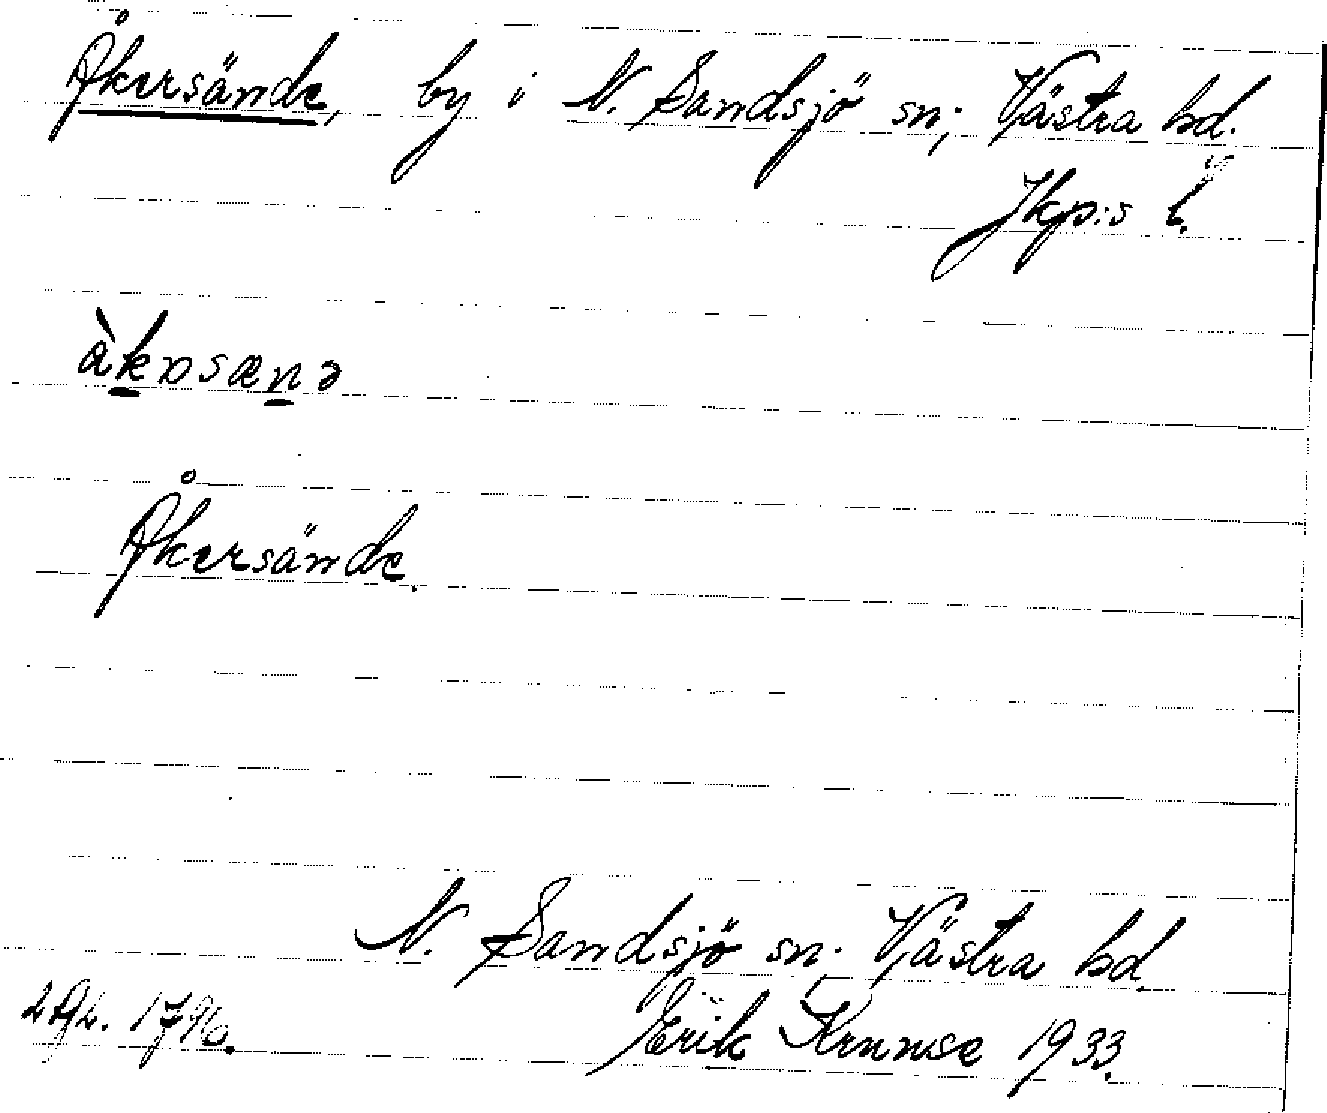 Åkersände, by i N. Sandsjö sn; Västra hd.
Jkp:s l.
àkɒsænə
Åkersände.
N. Sandsjö sn. Västra hd.
1796. Erik 1933.